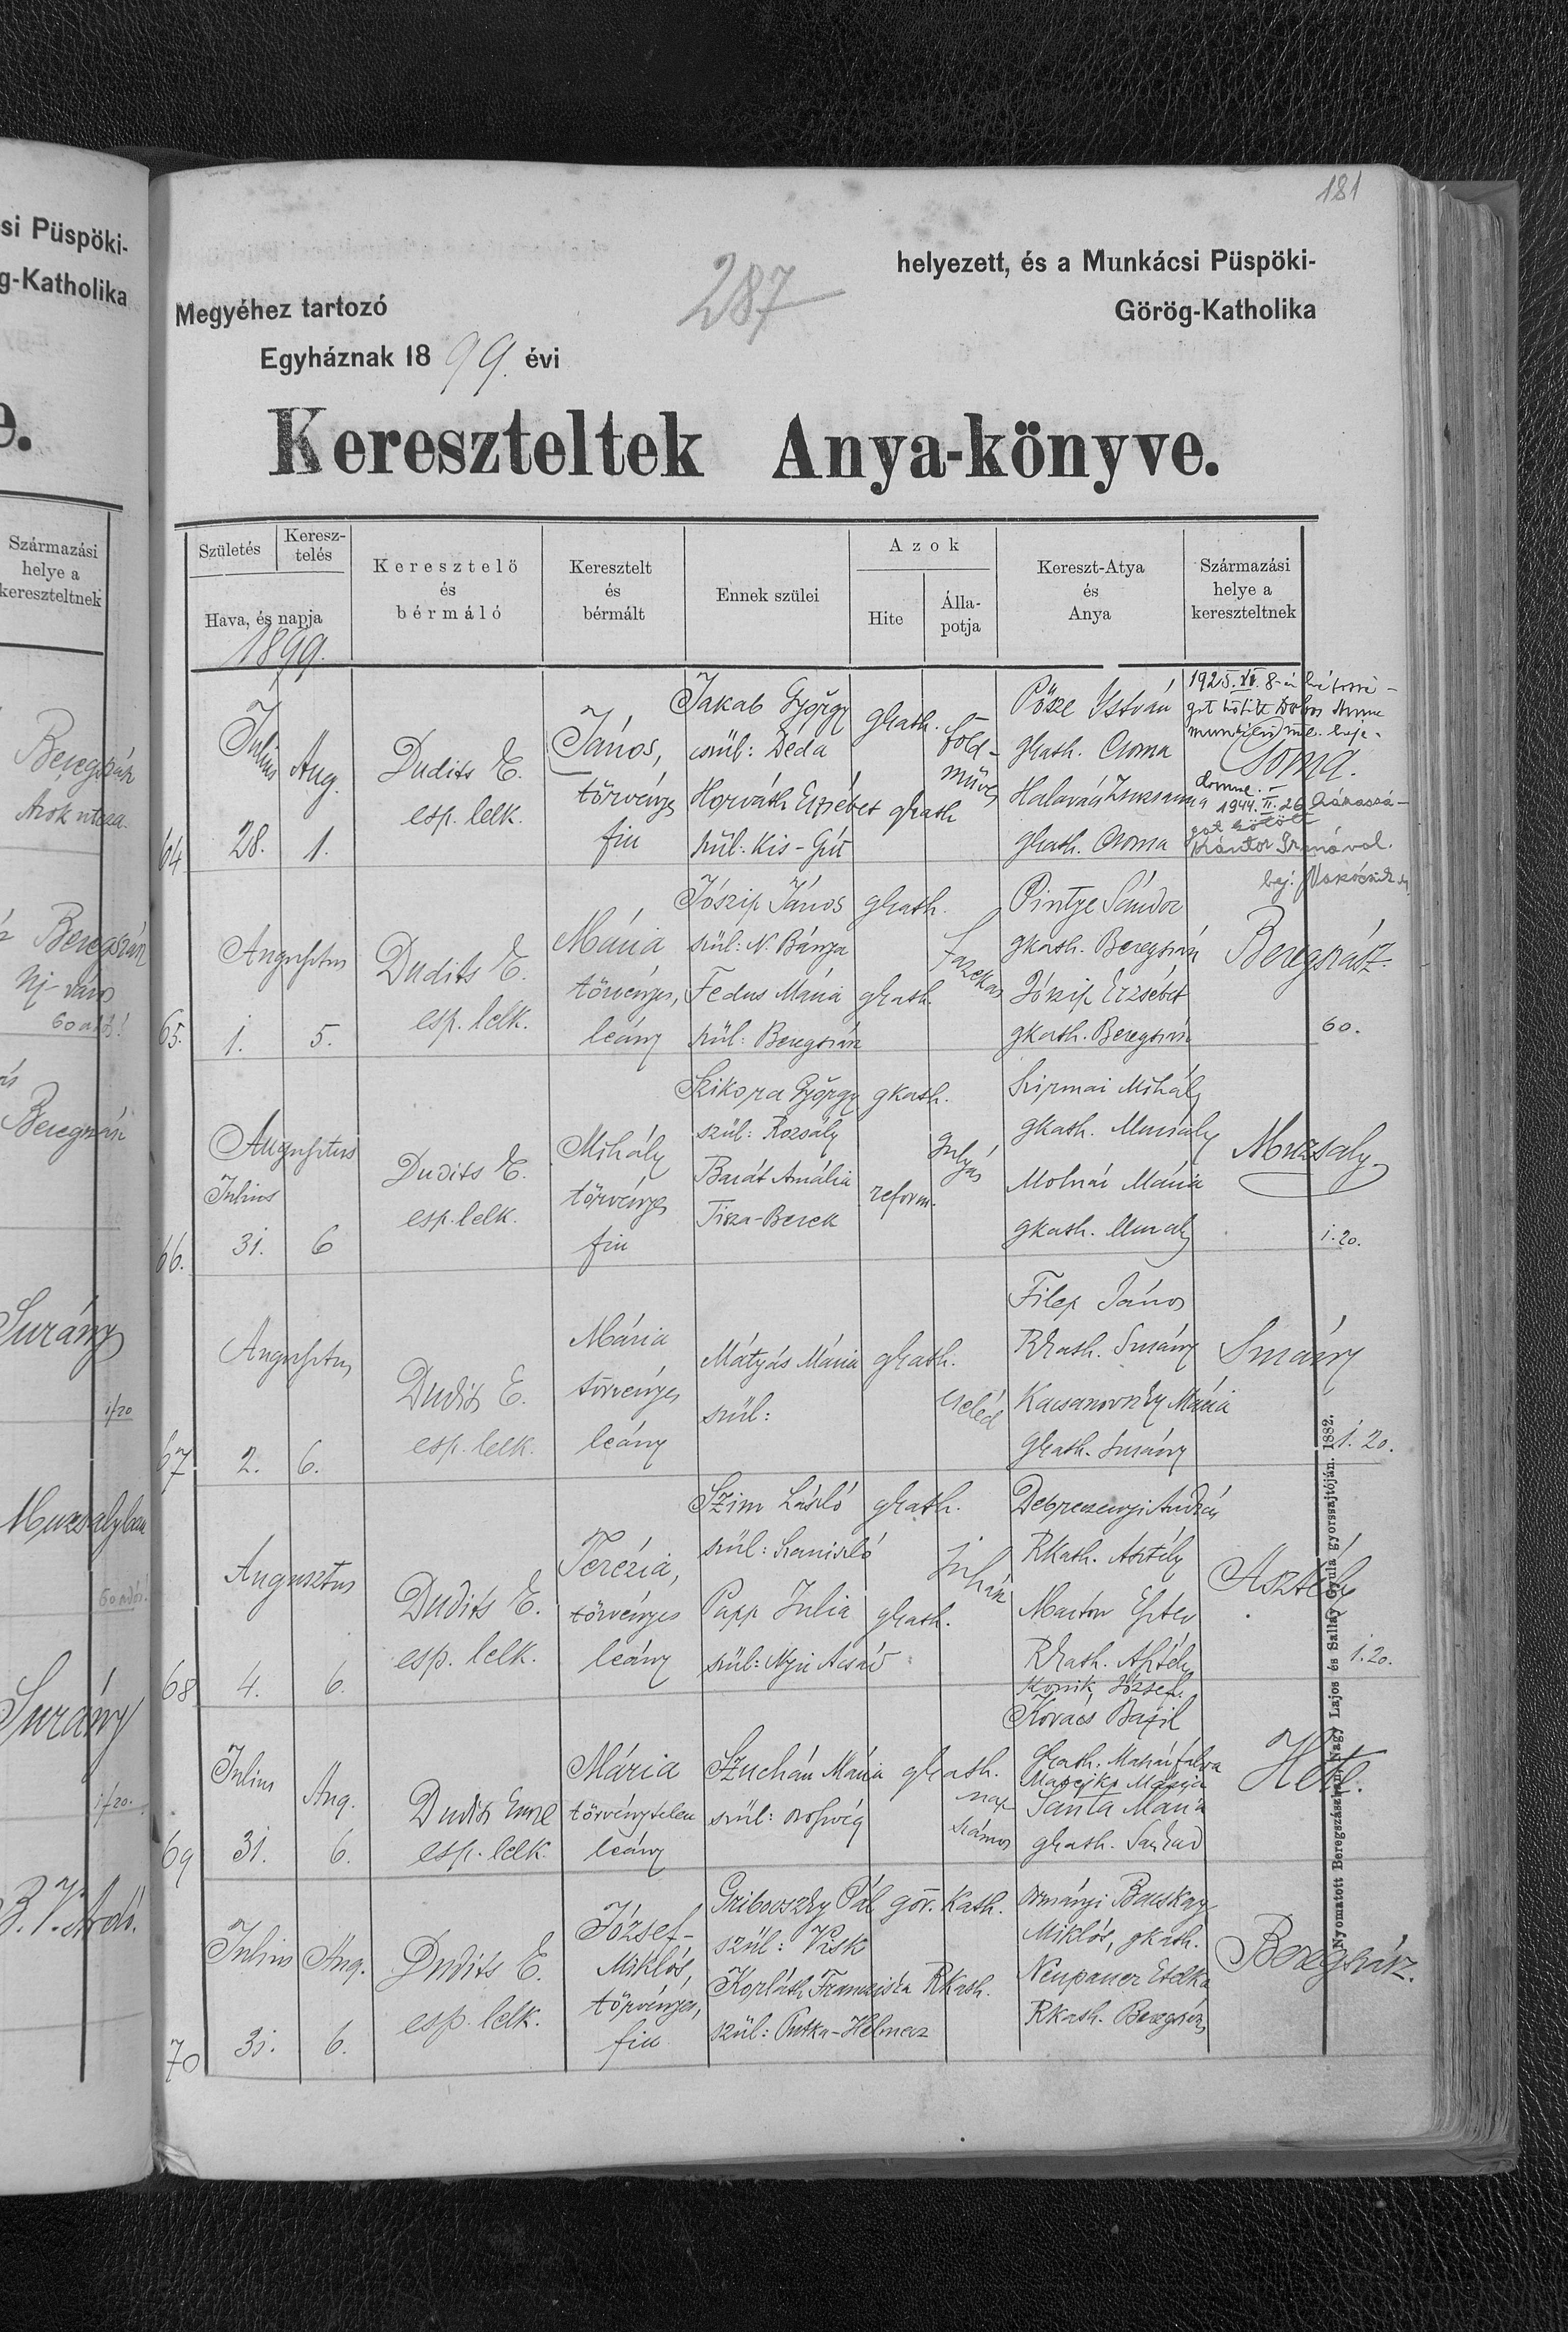 181
287
helyezett, és a Munkácsi Püspöki-
Megyéhez tartozó
Görög-Katholika
Egyháznak 1899. évi
Kereszteltek Anya-könyve.
Születés
Keresz-
telés
Hava, és napja
1899.
Keresztelö
és
bérmáló
Keresztelt
és
bérmált
Ennek szülei
Azok
Hite
Álla-
potja
Kereszt-Atya
és
Anya
Származási
helye a
kereszteltnek
64
Julius
28.
Aug.
1.
Dudits E.
esp. lelk.
János,
törvényes
fiu
Jakab György
szül: Déda
Horváth Erzsébet
szül. Kis-Gút
gkath.
gkath
föld-
műves
Pősze István
gkath. Csoma
Zsuzsanna
gkath. Csoma
Csoma.
1944. II. 26. házassá-
got kötött
Kántor Irmával.
65.
Augusztus
1.
5.
Dudits E.
esp. lelk.
Mária
törvényes,
leány
Jószip János
szül: N. Bánya
Fedus Mária
szül: Beregszász
gkath.
gkath.
fazekas
Pintye Sándor
gkath. Beregszász
Jószip Erzsébet
gkath. Beregszász
Beregszász
60.
66.
Augusztus
Julius
31.
6
Dudits E.
esp. lelk.
Mihály
törvényes
fiu
Szikora György
szül: Rozsály
Barát Amália
Tisza-Berek
gkath.
reform.
gulyás
Szirmai Mihály
gkath. Muzsaly
Molnár Mária
gkath. Muzsaly
Muzsaly
1.20.
67
Augusztus
2.
6.
Dudits E.
esp. lelk.
Mária
törvényes
leány
Mátyás Mária
szül:
gkath.
cseléd
Filep János
Rkath. Surány
Mária
gkath. Surány
Surány
1. 20.
68
Augusztus
4.
6.
Dudits E.
esp. lelk.
Terézia,
törvényes
leány
Szim László
szül: Szaniszló
Papp Julia
szül: Nyir Acsád
gkath.
gkath.
juhász
Debreczenyi András
Rkath. Asztély
Marton Eszter
Rkath. Asztély
Asztély
1.20.
69
Julius
31.
Aug.
6.
Dudits Emil
esp. lelk.
Mária
törvénytelen
leány
Szuchán Mária
szül:
gkath.
nap
számos
József.
Kovács Bazil
gkath.
Sánta Mária
gkath.
Hete.
70
Julius
31.
Aug.
6.
Dudits E.
esp. lelk.
József-
Miklós,
törvényes,
fiu
Gribovszky Pál
szül: Visk
Korláth Franciska
szül: Putka-Helmecz
gör. Kath.
Rkath.
Ormányi Bacskay
Miklós, gkath.
Neupauer Etelka
Rkath. Beregszász
Beregszász.
Nyomatott Beregszászban Nagy Lajos és Sallay Gyula gyorssajtóján. 1882.
si Püspöki-
g-Katholika
e.
Származási
helye a
kereszteltnek
Beregszász
Beregszász
Új-város
Beregszász
Surány
1/20
Muzsalyban
Surány
1/20.
B. V. Ardó.